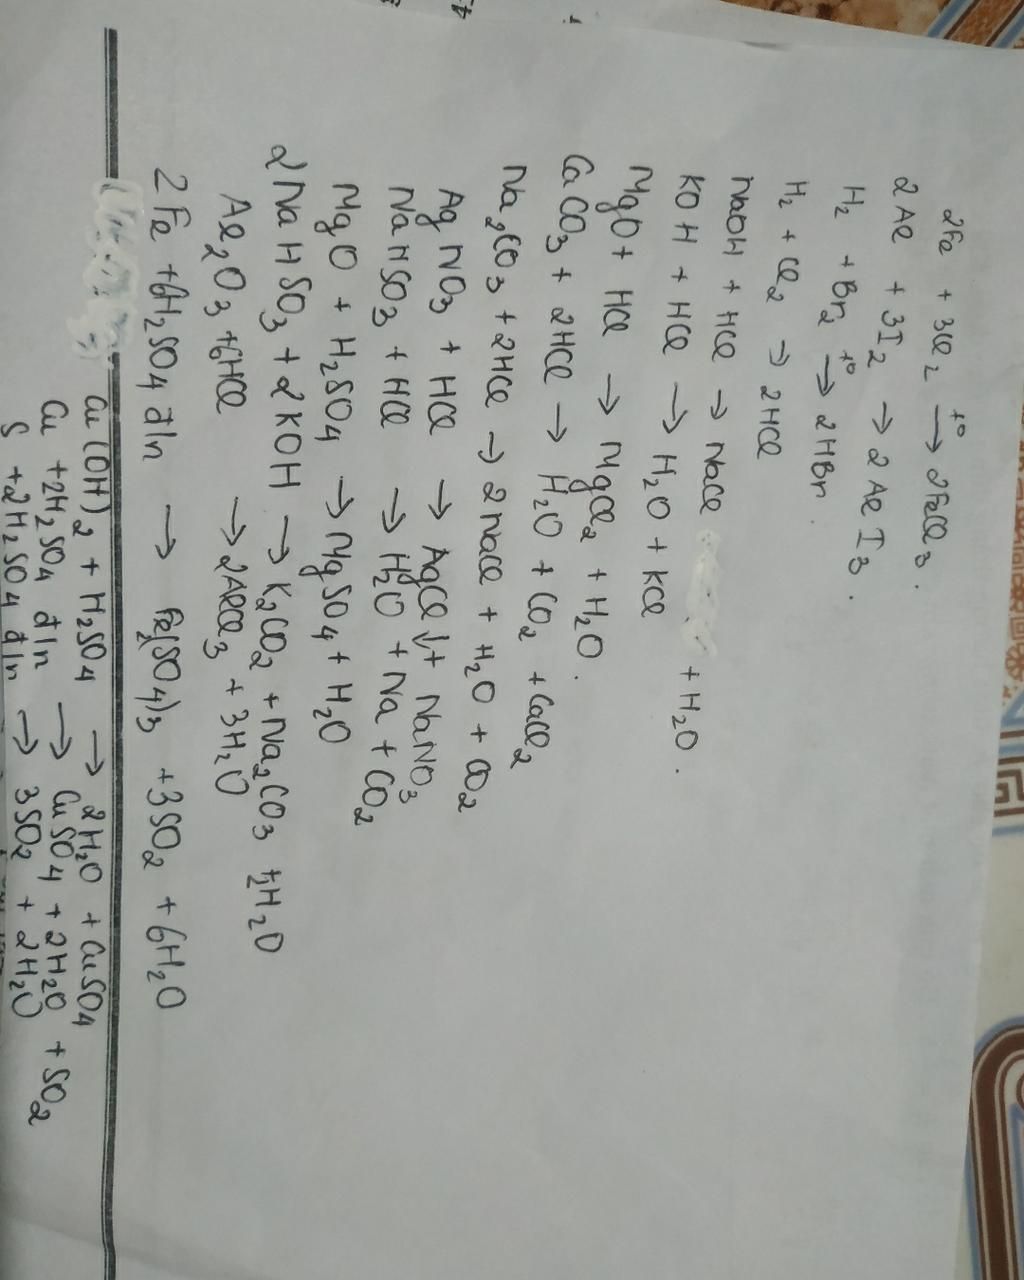 2Fe + 3Cl2 t° → 2FeCl3.
2Al + 3I2 → 2AlI3.
H2 + Br2 t° → 2HBr.
H2 + Cl2 → 2HCl
NaOH + HCl → NaCl + H2O.
KOH + HCl → H2O + KCl
MgO + HCl → MgCl2 + H2O.
CaCO3 + 2HCl → H2O + CO2 + CaCl2
Na2CO3 + 2HCl → 2NaCl + H2O + CO2
AgNO3 + HCl → AgCl↓ + NaNO3
NaHSO3 + HCl → H2O + Na + CO2
MgO + H2SO4 → MgSO4 + H2O
2NaHSO3 + 2KOH → K2CO2 + Na2CO3 + 2H2O
Al2O3 + 6HCl → 2AlCl3 + 3H2O
2Fe + 6H2SO4 đ/n → Fe2(SO4)3 + 3SO2 + 6H2O
Cu(OH)2 + H2SO4 → 2H2O + CuSO4
Cu + 2H2SO4 đ/n → CuSO4 + 2H2O + SO2
S + 2H2SO4 đ/n → 3SO2 + 2H2O